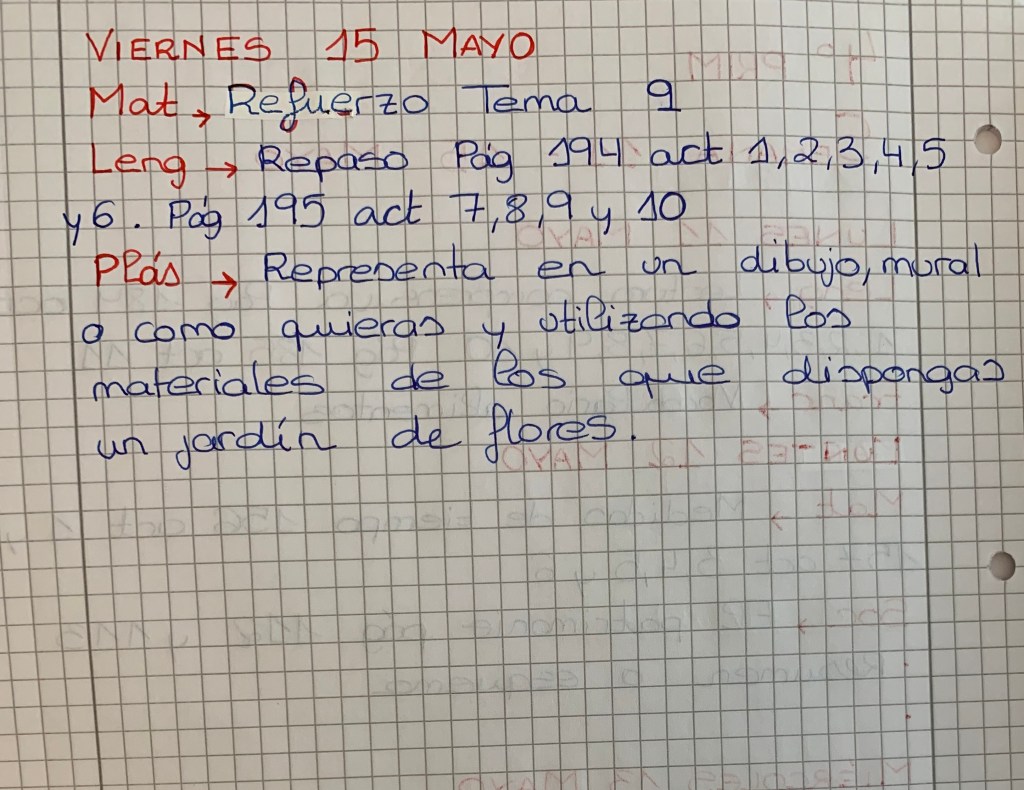 VIERNES 15 MAYO
Mat → Refuerzo Tema 9
Leng → Repaso Pág 194 act 1,2,3,4,5
y 6. Pág 195 act 7,8,9 y 10
Plás → Representa en un dibujo, mural
o como quieras y utilizando los
materiales de los que dispongas
un jardín de flores.